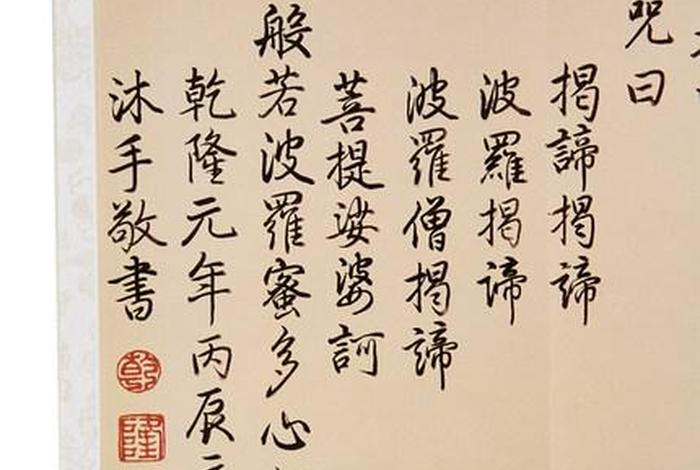 咒曰
揭諦揭諦
波羅揭諦
波羅僧揭諦
菩提娑婆訶
般若波羅蜜多心
乾隆元年丙辰
沐手敬書
乾
隆